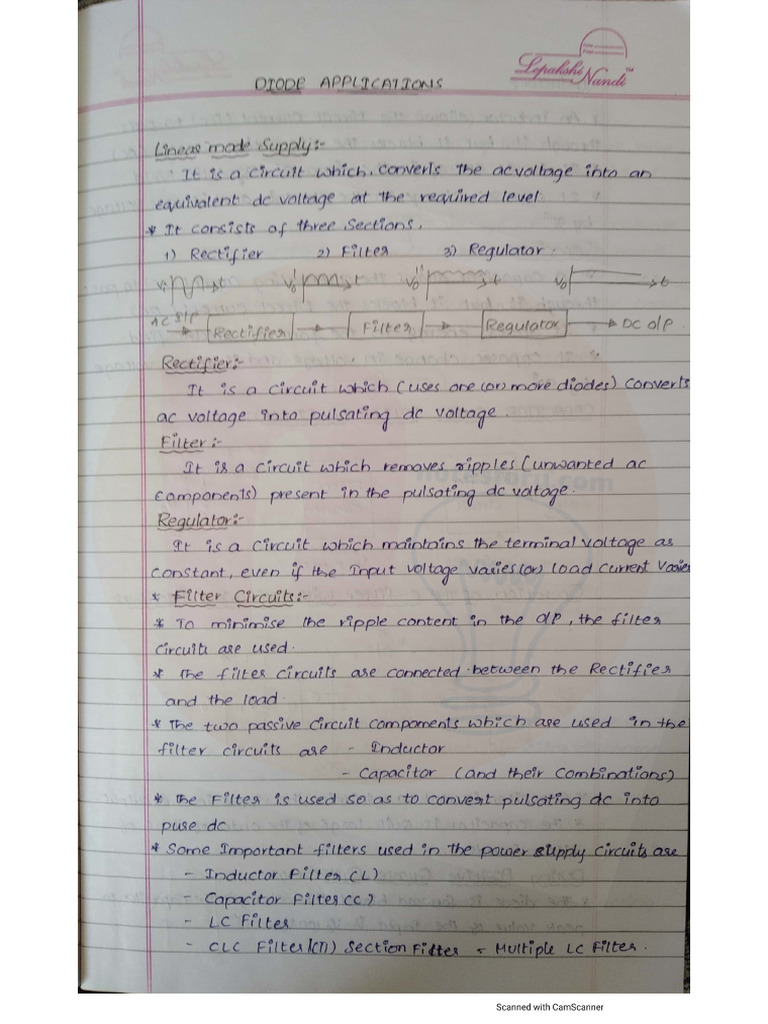 Lepakshi Nandi™
DIODE APPLICATIONS
Linear mode Supply:-
It is a circuit which, converts the ac voltage into an
equivalent dc voltage at the required level.
* It consists of three Sections.
1) Rectifier 2) Filter 3) Regulator
Vi t Vo' t Vo'' t Vo t
AC I/P Rectifier Filter Regulator DC O/P
Rectifier:-
It is a circuit which (uses one (or) more diodes) converts
ac voltage into pulsating dc voltage.
Filter:-
It is a circuit which removes ripples (unwanted ac
components) present in the pulsating dc voltage.
Regulator:-
It is a circuit which maintains the terminal voltage as
constant, even if the Input voltage varies (or) load current varies
* Filter Circuits:-
* To minimise the ripple content in the O/P, the filter
circuits are used.
* The filter circuits are connected between the Rectifier
and the load.
* The two passive circuit components which are used in the
filter circuits are - Inductor
- Capacitor (and their Combinations)
* The Filter is used so as to convert pulsating dc into
puse dc
* Some Important filters used in the power supply circuits are
- Inductor Filter (L)
- Capacitor Filter (C)
- LC Filter
- CLC Filter (π) Section Filter - Multiple LC Filter.
Scanned with CamScanner